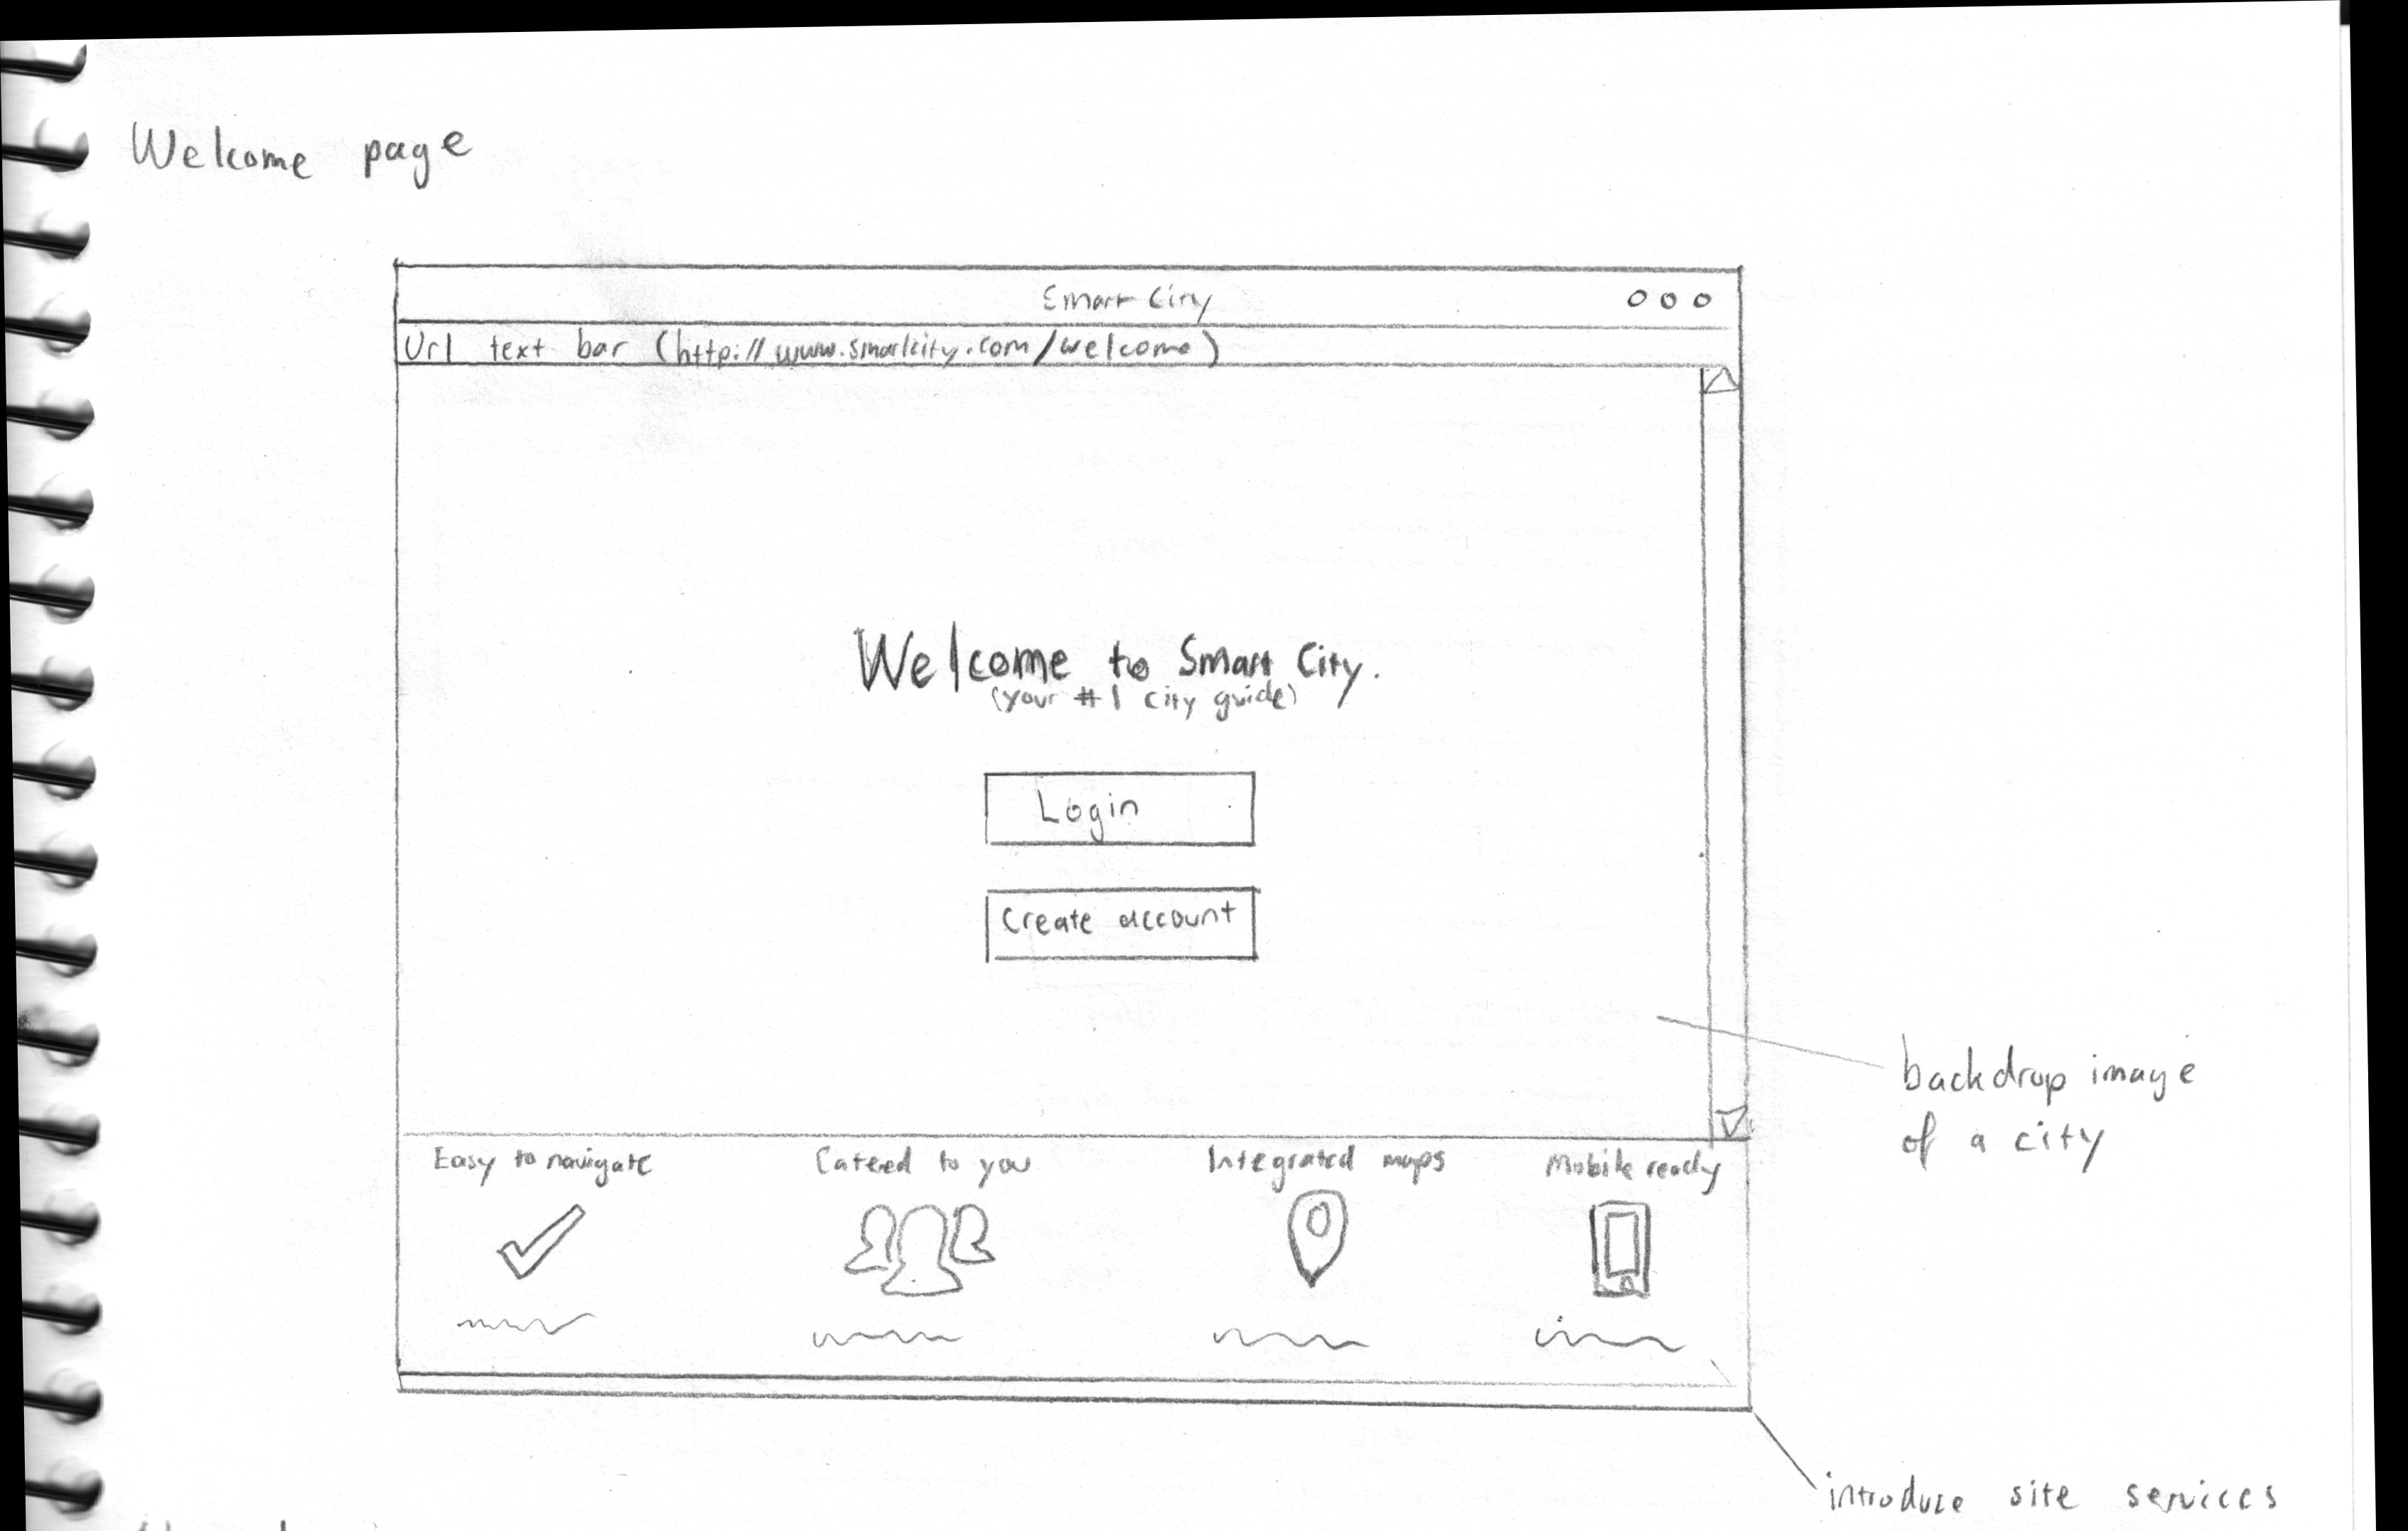 Welcome page
Smart City
Url text bar (http://www.smartcity.com/welcome)
Welcome to Smart City.
(your #1 city guide)
Login
Create account
backdrop image
of a city
Easy to navigate
Catered to you
Integrated maps
Mobile ready
introduce site services